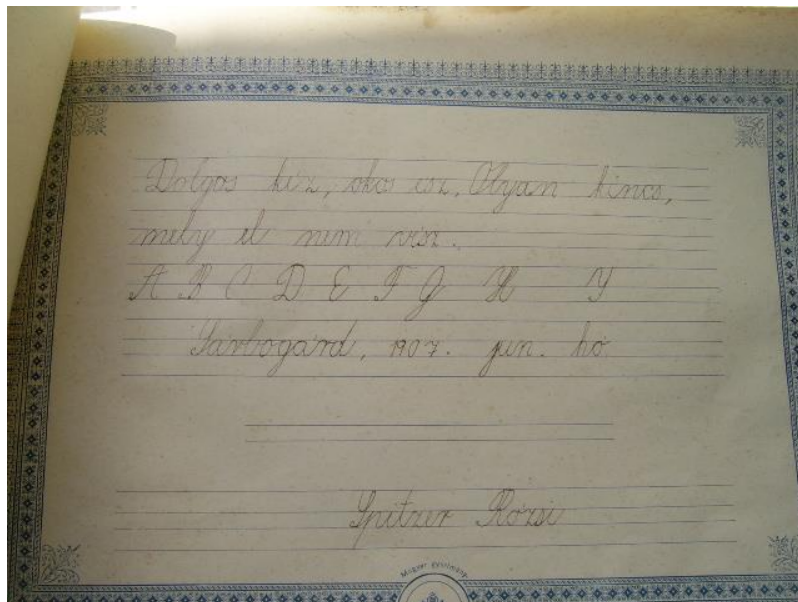 Dolgos kéz, okos ész, Olyan kincs,
mely el nem vész.
A B C D E F G H Y
Sárbogárd, 1907. jun. hó.
Spitzer Rózsi
Magyar